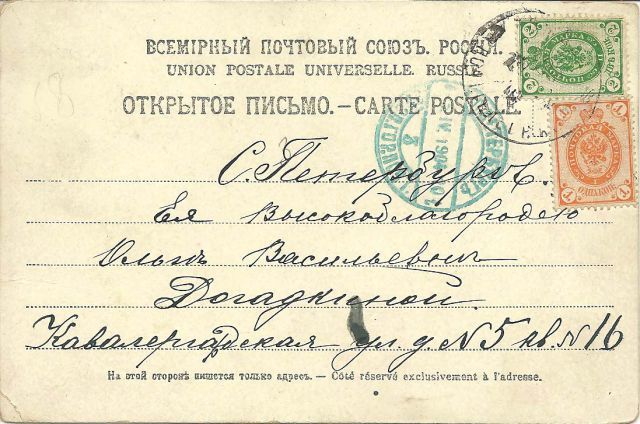 ВСЕМІРНЫЙ ПОЧТОВЫЙ СОЮЗЪ. РОССІЯ.
UNION POSTALE UNIVERSELLE. RUSSIE.
ОТКРЫТОЕ ПИСЬМО.—CARTE POSTALE.
С.Петербургъ.
Ея Высокоблагородію
Ольгѣ Васильевнѣ
Догадкиной
Кавалергардская ул. д. N 5 кв. N 16
На этой сторонѣ пишется только адресъ. — Côté réservé exclusivement à l'adresse.